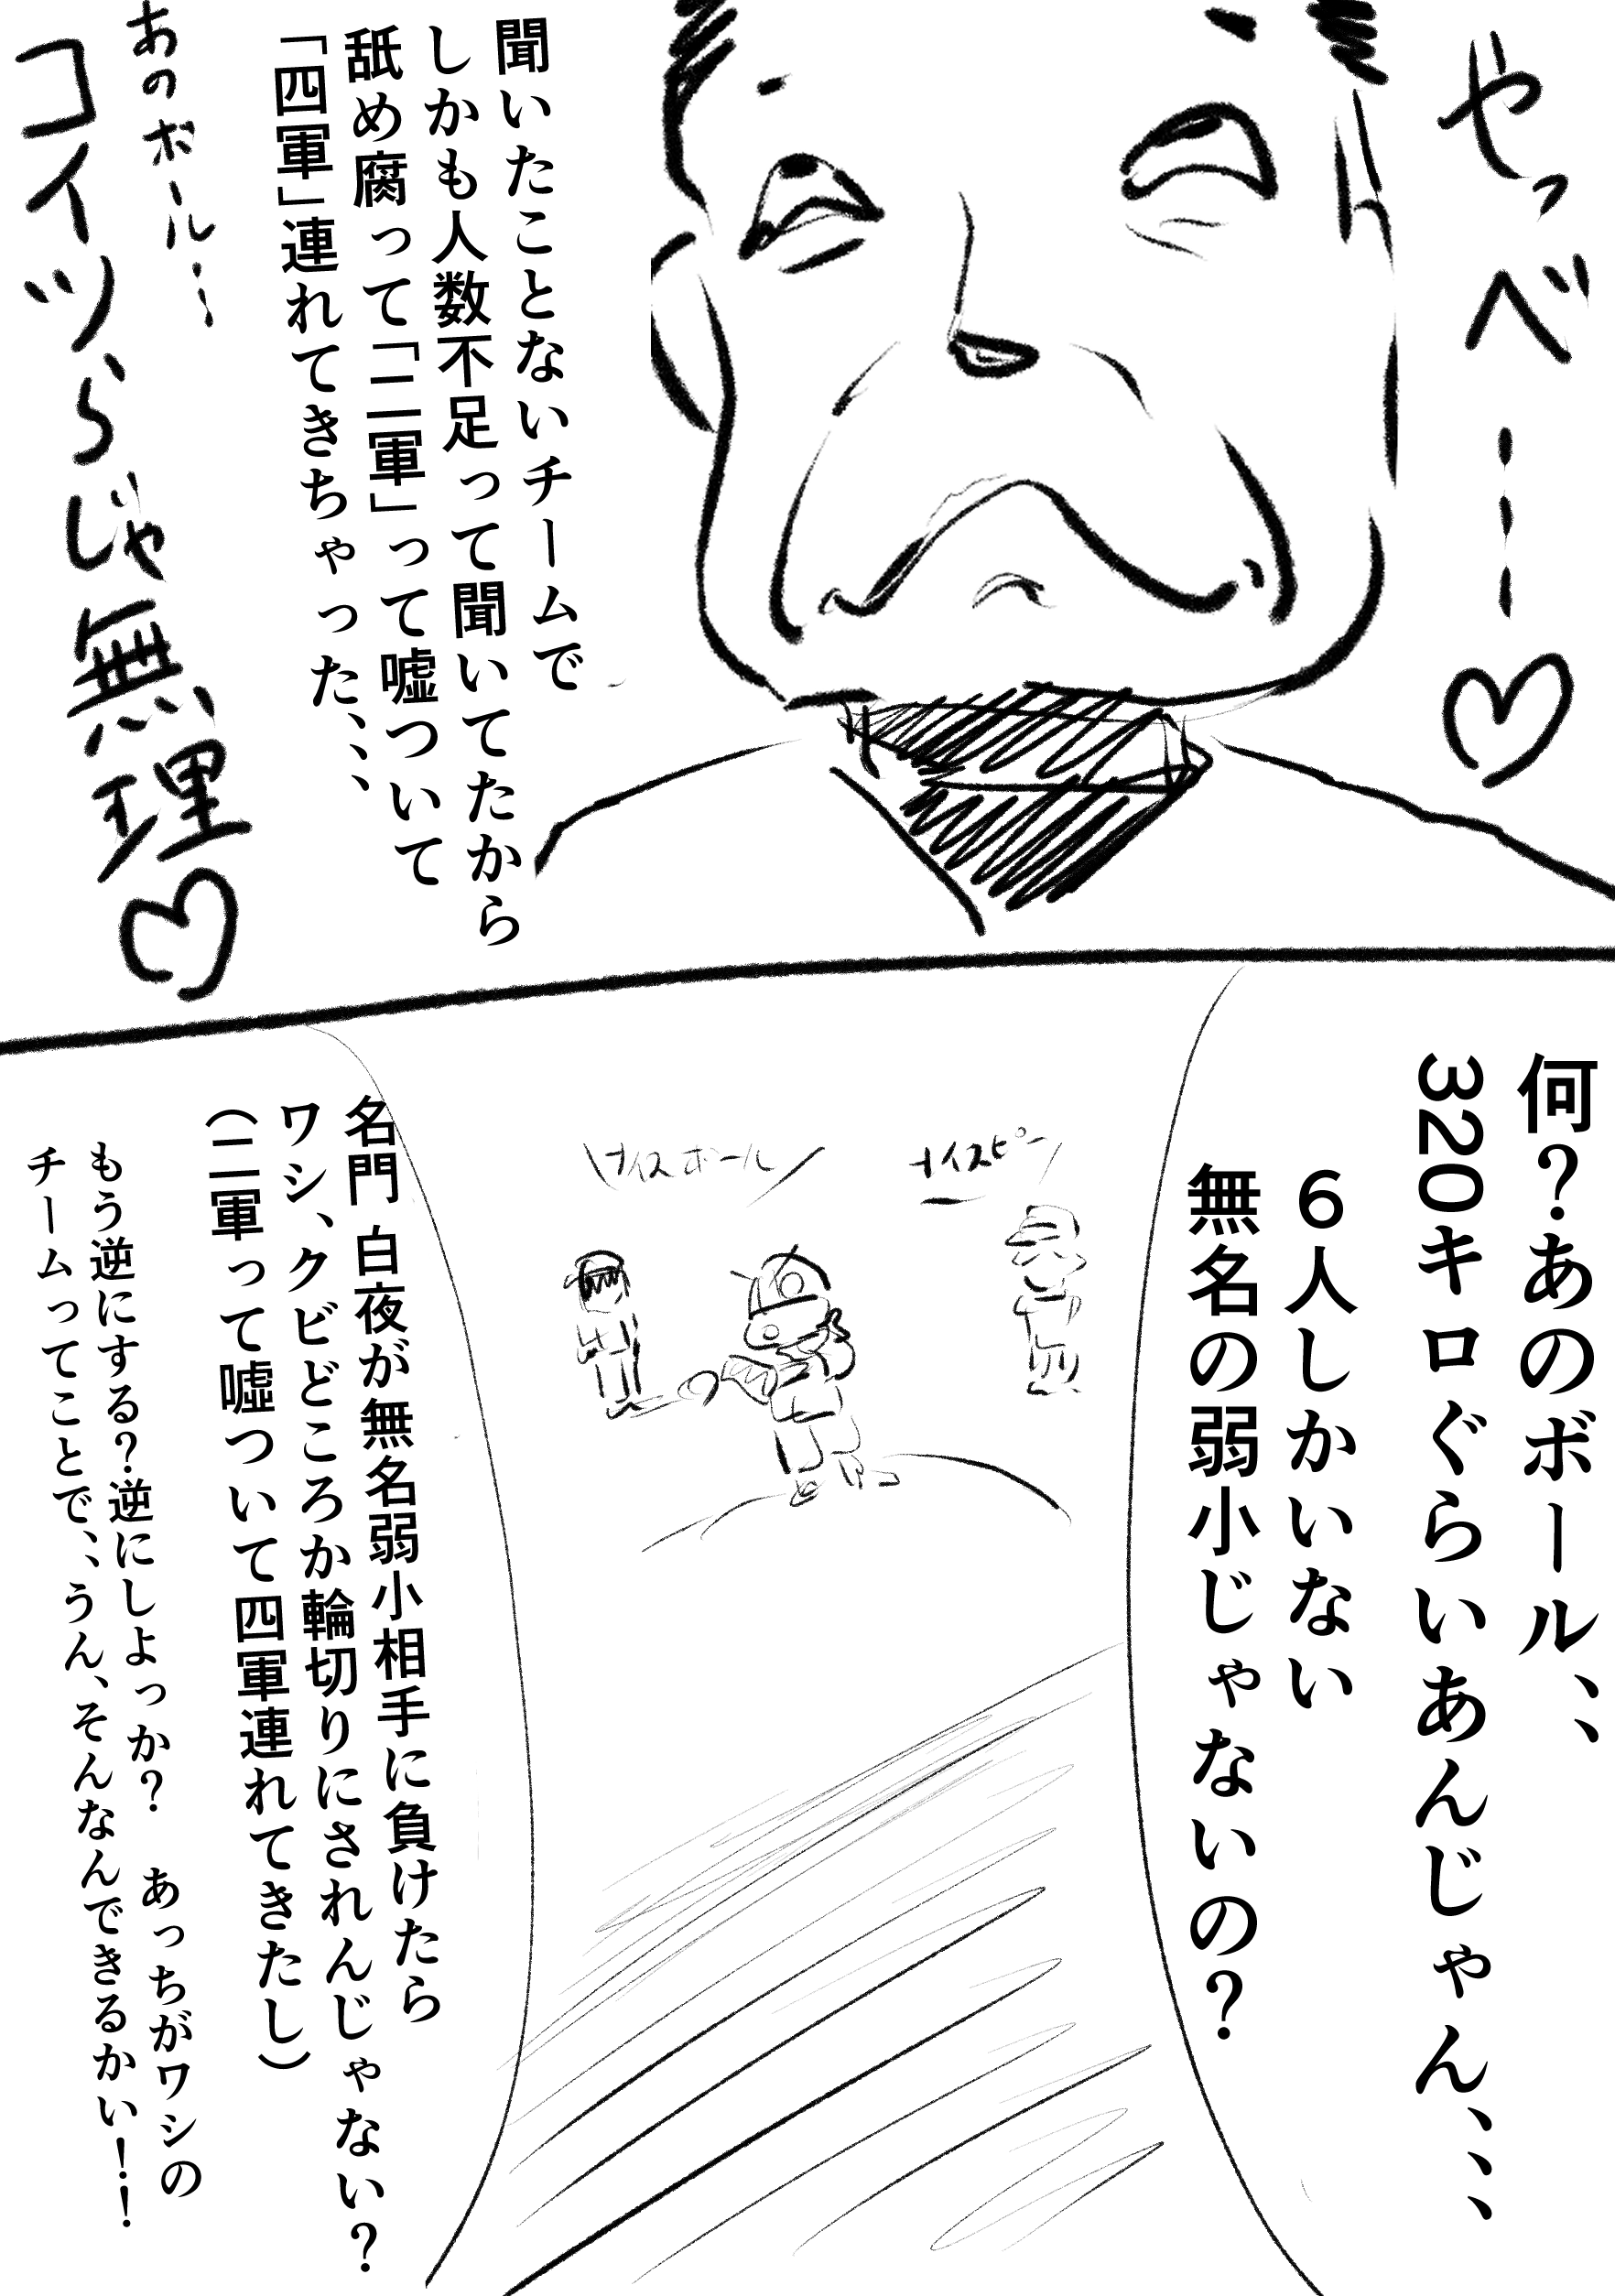 やっべ…♡
聞いたことないチームで
しかも人数不足って聞いてたから
舐め腐って「二軍」って嘘ついて
「四軍」連れてきちゃった、、、
あのボール…
コイツらじゃ無理♡
何？あのボール、、
320キロぐらいあんじゃん、、、
６人しかいない
無名の弱小じゃないの？
ナイスピー
ナイスボール
名門 白夜が無名弱小相手に負けたら
ワシ、クビどころか輪切りにされんじゃない？
（二軍って嘘ついて四軍連れてきたし）
もう逆にする？逆にしよっか？　あっちがワシの
チームってことで、、うん、そんなんできるかい！！